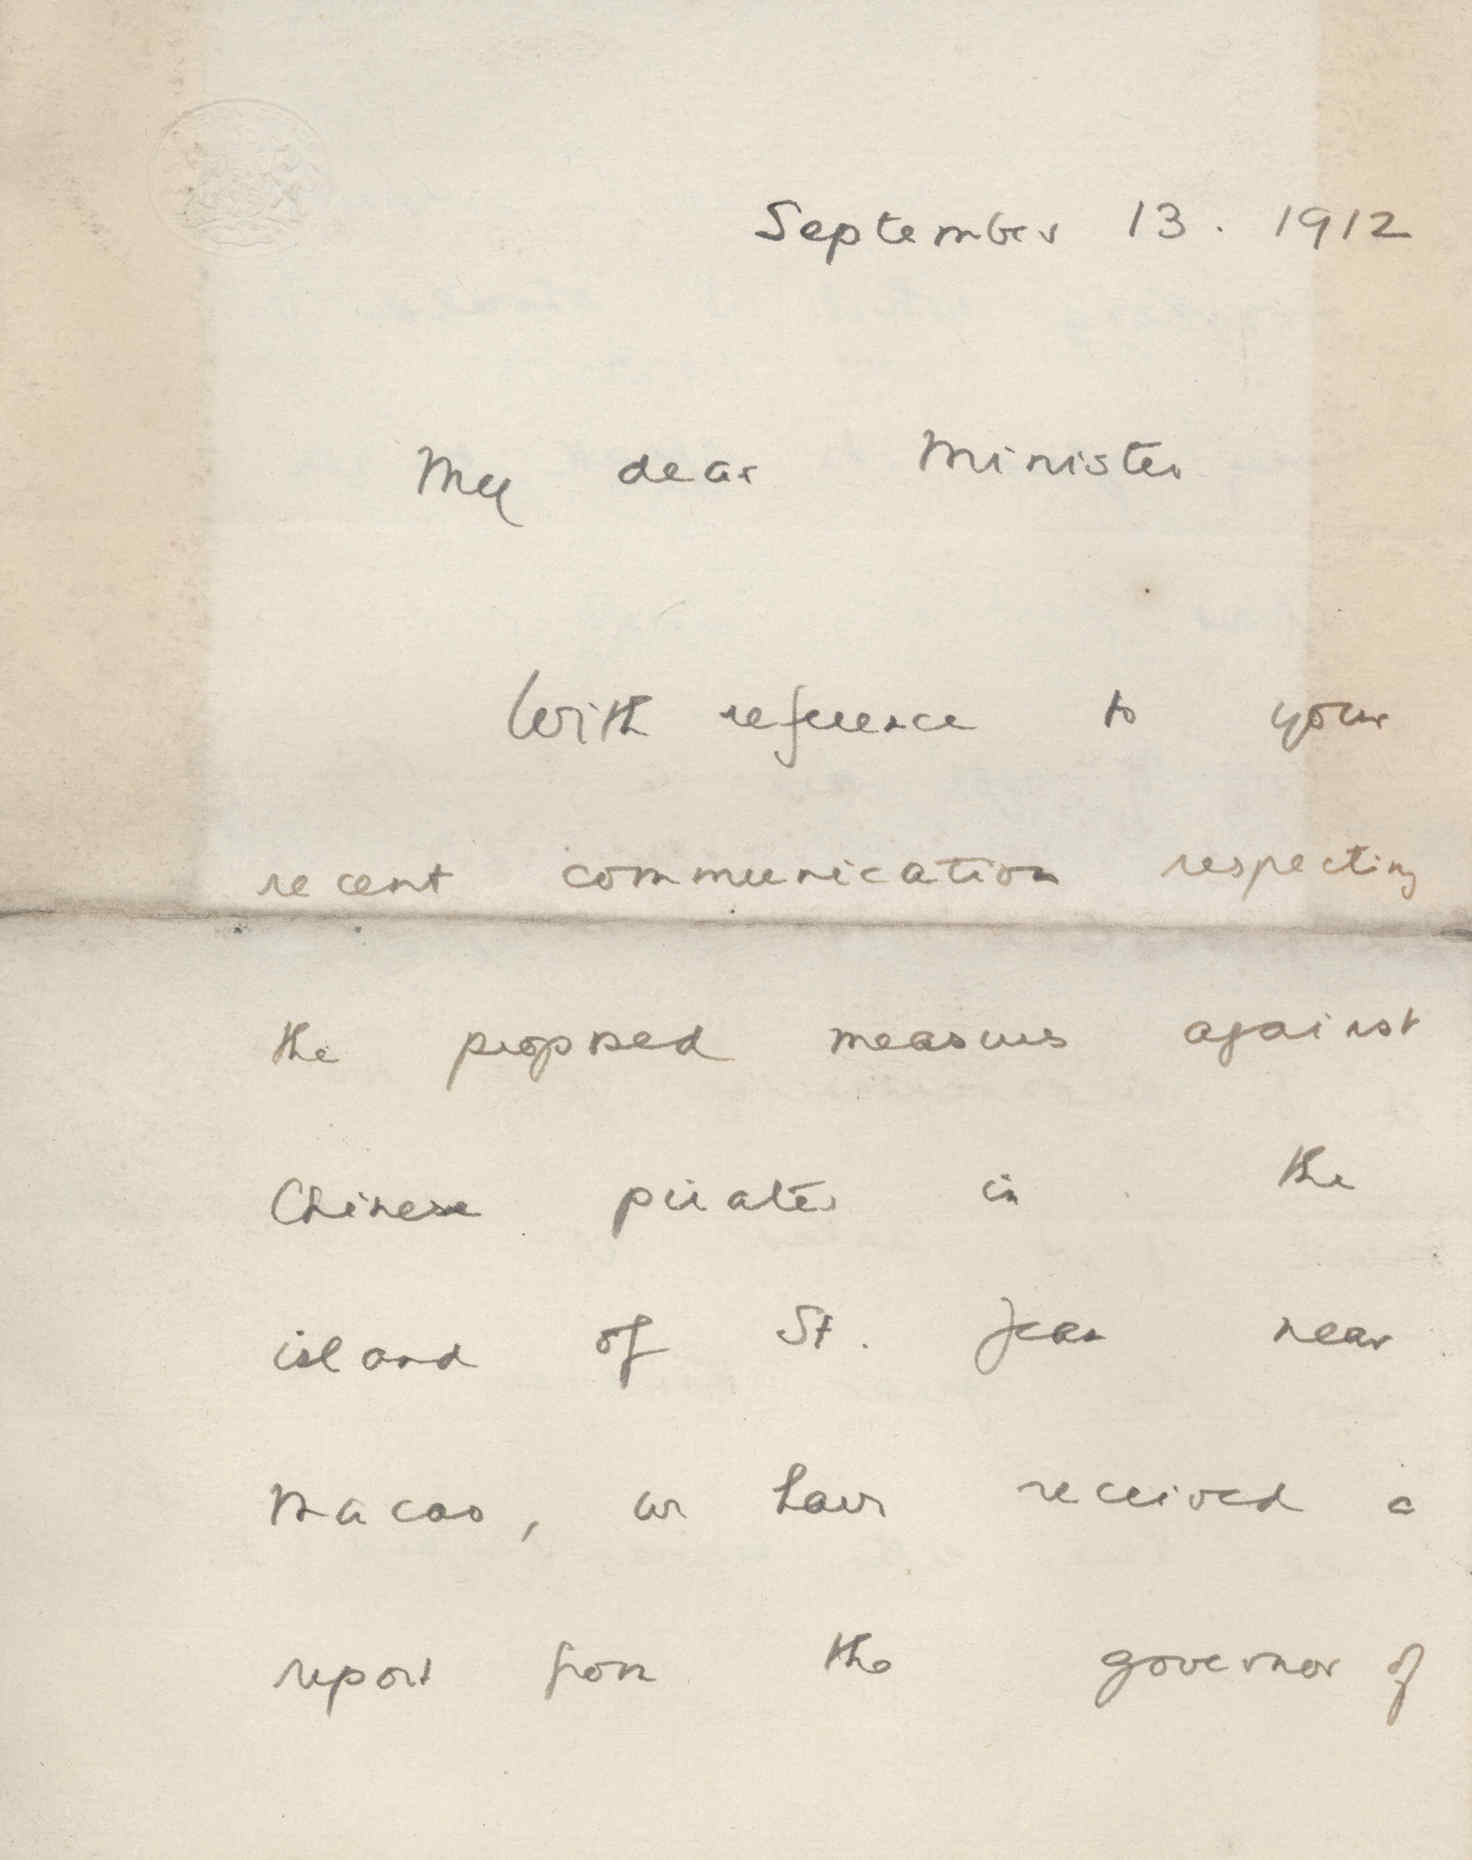 September 13. 1912
My dear Minister
With reference to your
recent communication respecting
the proposed measures against
Chinese pirates in the
island of St. Jean near
Macao, we have received a
report from the governor of